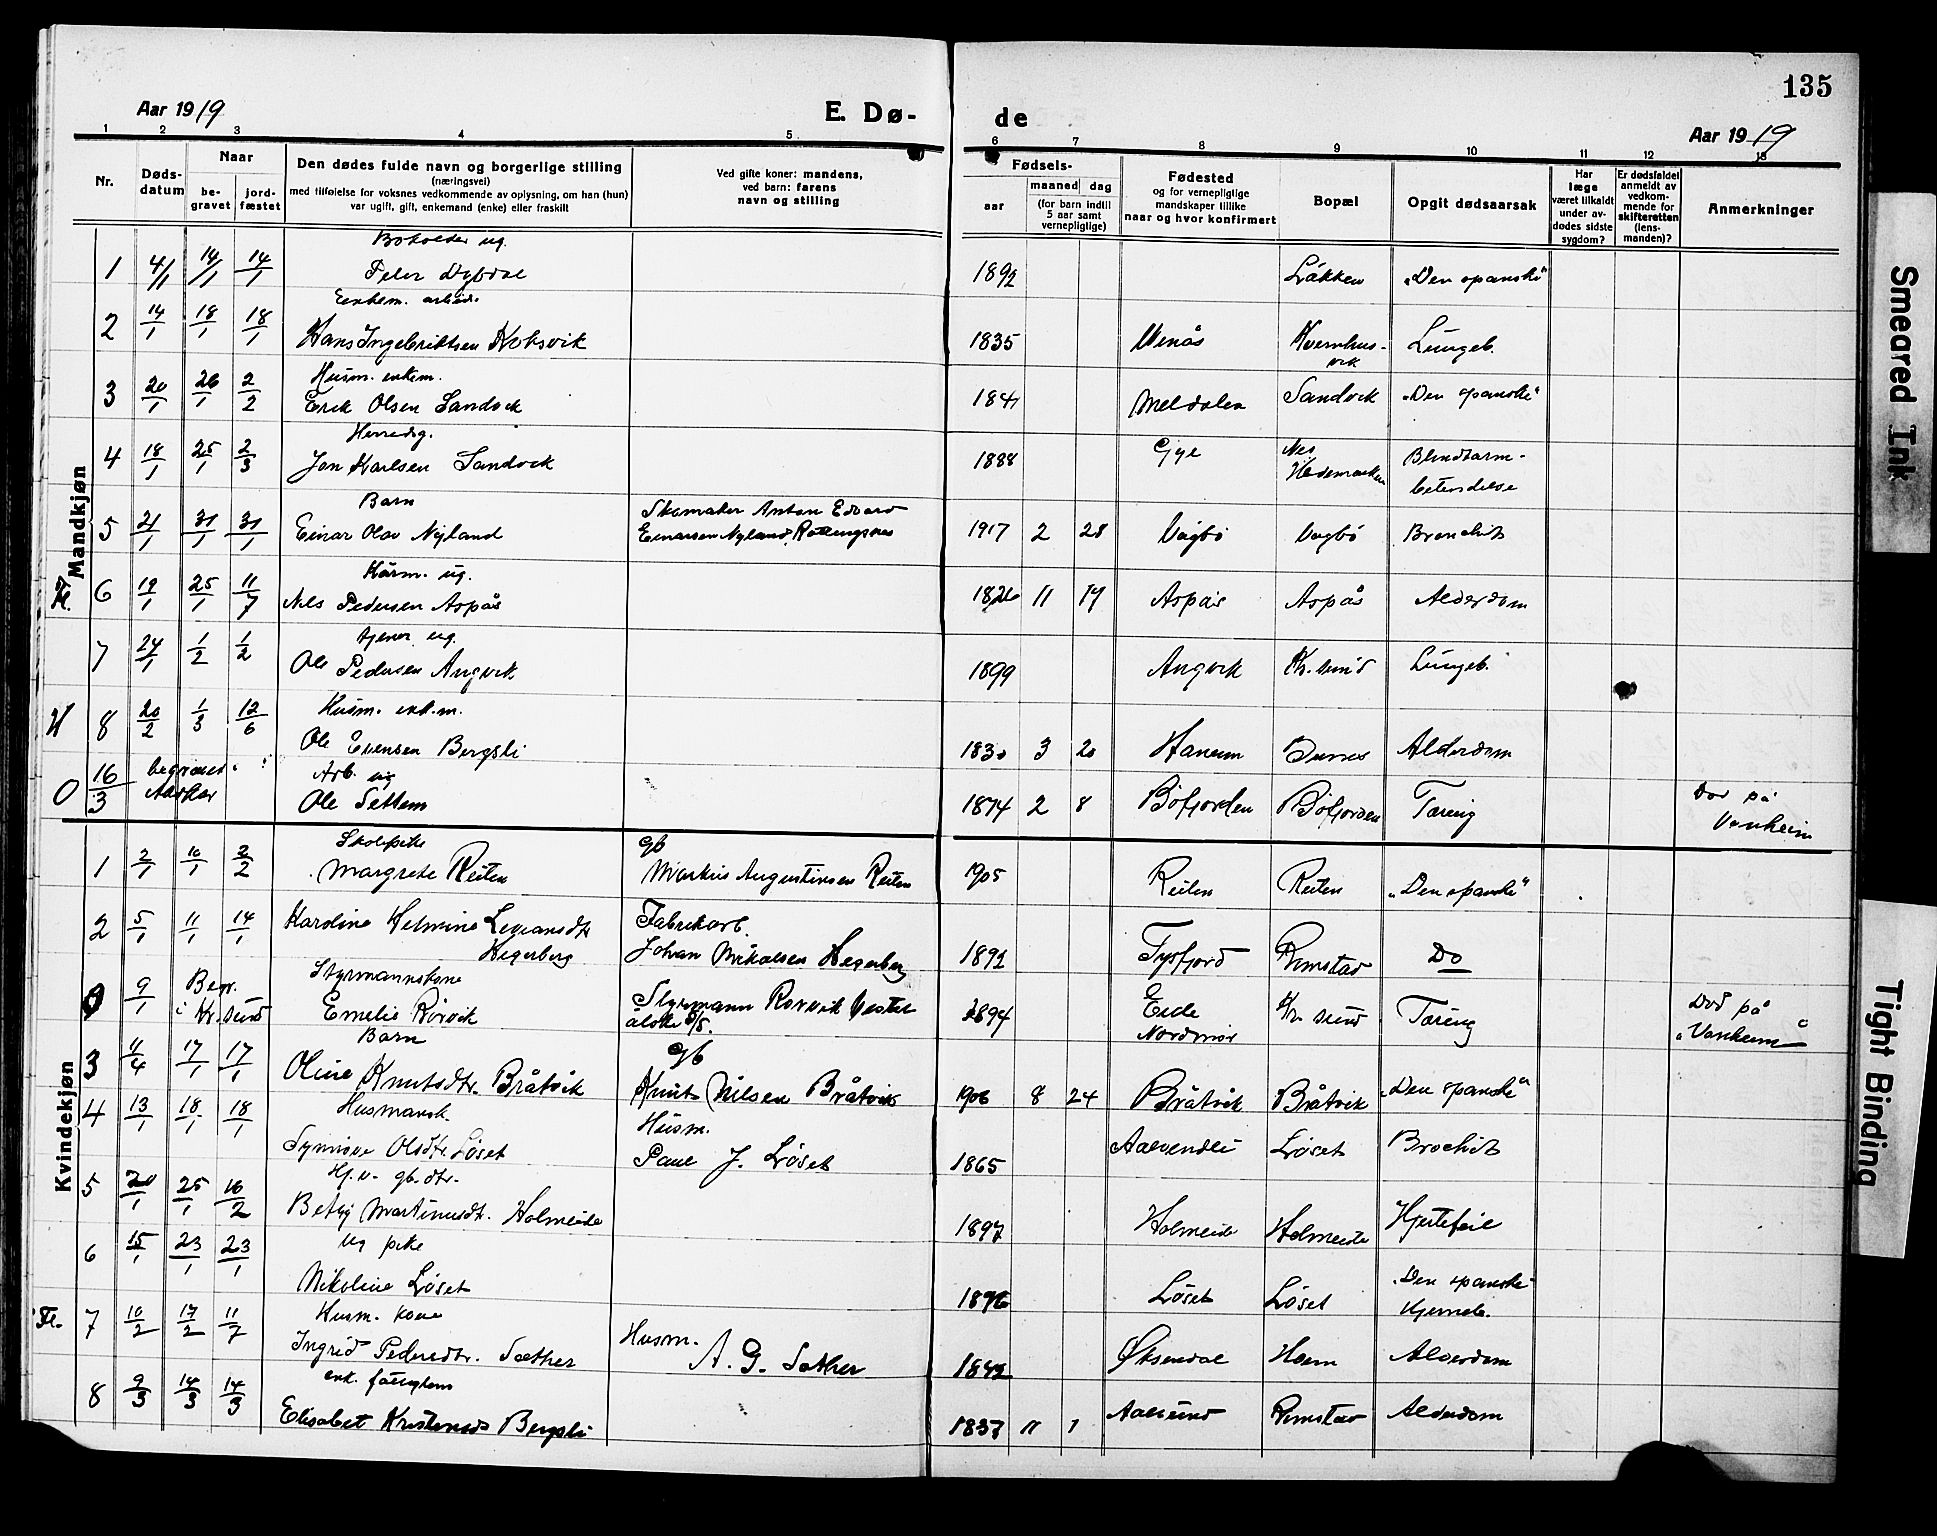 135
Aar 1919
E. Dø-
de
Aar 1919
1 2 3 4 5 6 7 8 9 10 11 12 13
Nr.
Døds-
datum
Naar
be-
gravet
jord-
fæstet
Den dødes fulde navn og borgerlige stilling
(næringsvei)
med tilføielse for voksnes vedkommende av oplysning, om han (hun)
var ugift, gift, enkemand (enke) eller fraskilt
Ved gifte koner: mandens,
ved barn: farens
navn og stilling
Fødsels-
aar
maaned dag
(for barn indtil
5 aar samt
vernepligtige)
Fødested
og for vernepligtige
mandskaper tillike
naar og hvor konfirmert
Bopæl
Opgit dødsaarsak
Har
læge
været tilkaldt
under av-
dødes sidste
sygdom?
Er dødsfaldet
anmeldt av
vedkom-
mende for
skifteretten
(lens-
manden)?
Anmerkninger
Mandkjøn
Bokolder ug.
1 4/1 14/1 14/1 Peter Dybdal 1892 Løkken "Den spanske"
Enkem. arbeid.
2 14/1 18/1 18/1 Hans Ingebriktsen Koksvik 1835 Kvernhus-
vik Lungeb.
Husm. enkem.
3 20/1 26/1 2/2 Erik Olsen Sandvik 1841 Meldalen Sandvik "Den spanske"
4 18/1 25/1 2/3 Jon Karlsen Sandvik 1888 Nes
Hedemarken Blindtarm-
betendelse
Barn
5 21/1 31/1 31/1 Einar Olav Nyland Skomaker Anton Edvard
Einarsen Nyland 1917 2 28 Vågbø Vagbø Bronchit
Kårm. ug.
6 19/1 25/1 11/7 Nils Pedersen Aspås 1826 11 19 Aspås Aspås Alderdom
Tjener ug.
7 24/1 1/2 1/2 Ole Pedersen Angvik 1899 Angvik Kr. sund Lungeb.
Husm. enk.m.
8 20/2 1/3 12/6 Ole Evensen Bergsli 1830 3 20 Alderdom
O 16/3 begravet Arb. ug
Ole Settem 1874 2 8 Bøfjorden Bøfjorden Tæring Død på
Vonheim
Kvindekjøn
Skolepike
1 2/1 10/1 2/2 Margrete Reiten gb
Markus Augustinsen Reiten 1905 Reiten Reiten "Den spanske"
2 5/1 11/1 14/1 Kardine Helmine
Hegerberg Fabrikarb.
Johan Mikalsen Hegerberg 1892 Tysfjord Rimstad Do
Styrmannskone
9/1 Begr.
i Kr. sund Emelie Rørvik Styrmann Rørvik 1894 Eide
Nordmør Kr. sund Tæring Død på
"Vonheim"
Barn
3 11/4 17/1 17/1 Oline Knutsdtr. Bråtvik gb
Knut Nilsen Bråtvik 1906 8 24 Bråtvik Bråtvik "Den spanske"
Husmansk.
4 13/1 18/1 18/1 Synnøve Olsdtr. Løset Husm.
Paul J. Løset 1865 Aalvundli Løset Brochit
Hj.v. gb.dtr.
5 20/1 25/1 16/2 Betzy Martinusdt. Holmeide 1897 Holmeide Holmeide Hjertefeil
ug pike
6 15/1 23/1 23/1 Nikoline Løset 1896 Løset Løset "Den spanske"
Husm. kone
7 10/2 17/2 11/7 Ingrid Pedersdtr. Sæther Husm.
A. G. Sæther 1842 Øksendal Hoem Alderdom
8 9/3 14/3 14/3 Elisabet Kristensd. Bergsli 1837 11 1 Aalesund Rimstad Alderdom
Smeared Ink
Tight Binding